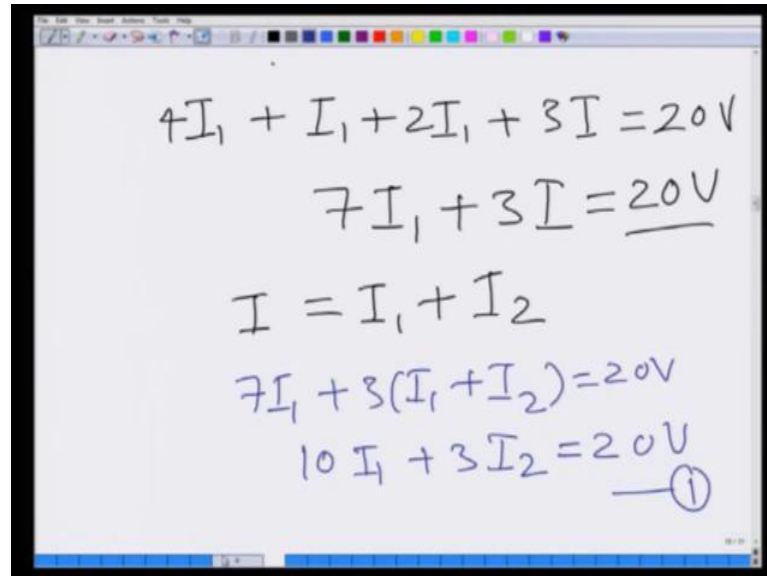 File Edit View Insert Actions Tools Help
4I₁ + I₁ + 2I₁ + 3I = 20V
7I₁ + 3I = 20V
I = I₁ + I₂
7I₁ + 3(I₁ + I₂) = 20V
10I₁ + 3I₂ = 20V
—①